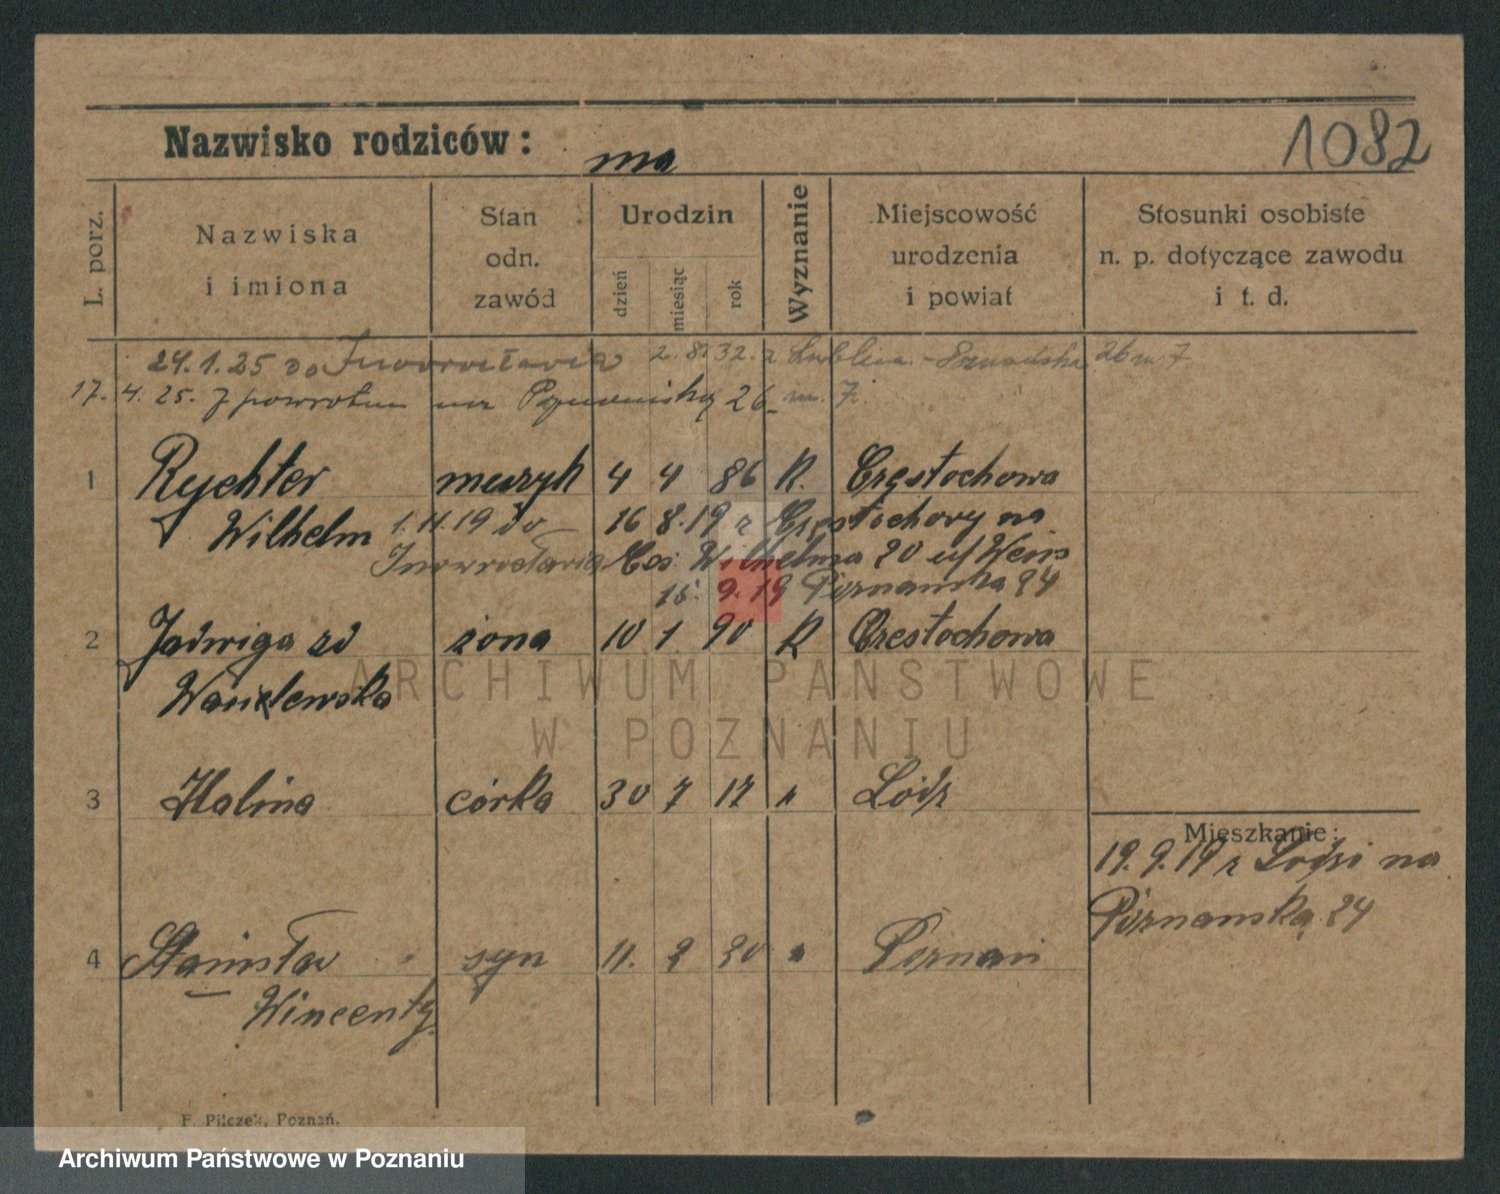 1082
Nazwisko rodziców:
L. porz.
Nazwiska
i imiona
Stan
odn.
zawód
Urodzin
dzień
miesiąc
rok
Wyznanie
Miejscowość
urodzenia
i powiat
Stosunki osobiste
n. p. dotyczące zawodu
i t. d.
24.1.25 do Inowrocławia 2.8.32. z Lublina. 26 m 7
17. 4. 25. z powrotem na 26 m. 7.
1 Rychter muzyk 4 4 86 R. Częstochowa
Wilhelm 1.11.19 do 16 8.19 z Częstochowy na
Inowrocławia Ces. Wilhelma 20 u/ Weiss
15. 9.19 Poznańska 24
2 Jadwiga zd żona 10 1 90 R Częstochowa
Wasilewska
ARCHIWUM PAŃSTWOWE
W POZNANIU
3 Halina córka 30 7 17 " Łódź
Mieszkanie:
19.9.19 z Łodzi na
Poznańską 24
4 Stanisław syn 11. 2 20 " Poznań
Wincenty
F. Pilczek, Poznań.
Archiwum Państwowe w Poznaniu